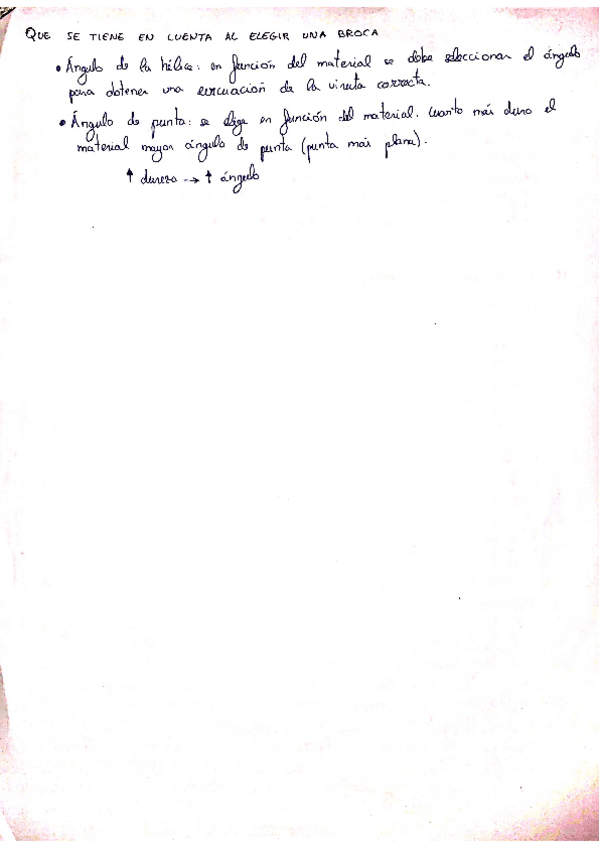 QUE SE TIENE EN CUENTA AL ELEGIR UNA BROCA
• Ángulo de la hélice: en función del material se debe seleccionar el ángulo
para obtener una evacuación de la viruta correcta.
• Ángulo de punta: se elige en función del material. Cuanto más duro el
material mayor ángulo de punta (punta más plana).
↑ dureza → ↑ ángulo